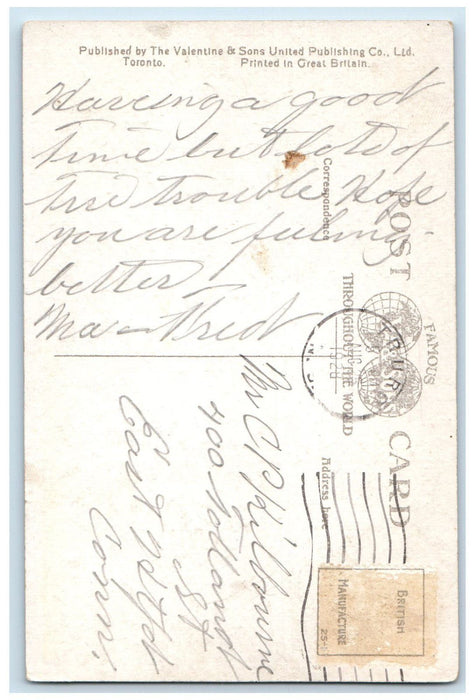 Published by The Valentine & Sons United Publishing Co., Ltd.
Toronto. Printed in Great Britain.
Having a good
time but lots of
tire trouble Hope
you are feeling
better
Ma - Fred
Correspondence
POST CARD
FAMOUS
THROUGHOUT THE WORLD
Address here
TRURO
N.S.
Mr C P Kilbourne
400 Tolland
St
East Htfd
Conn.
BRITISH
MANUFACTURE